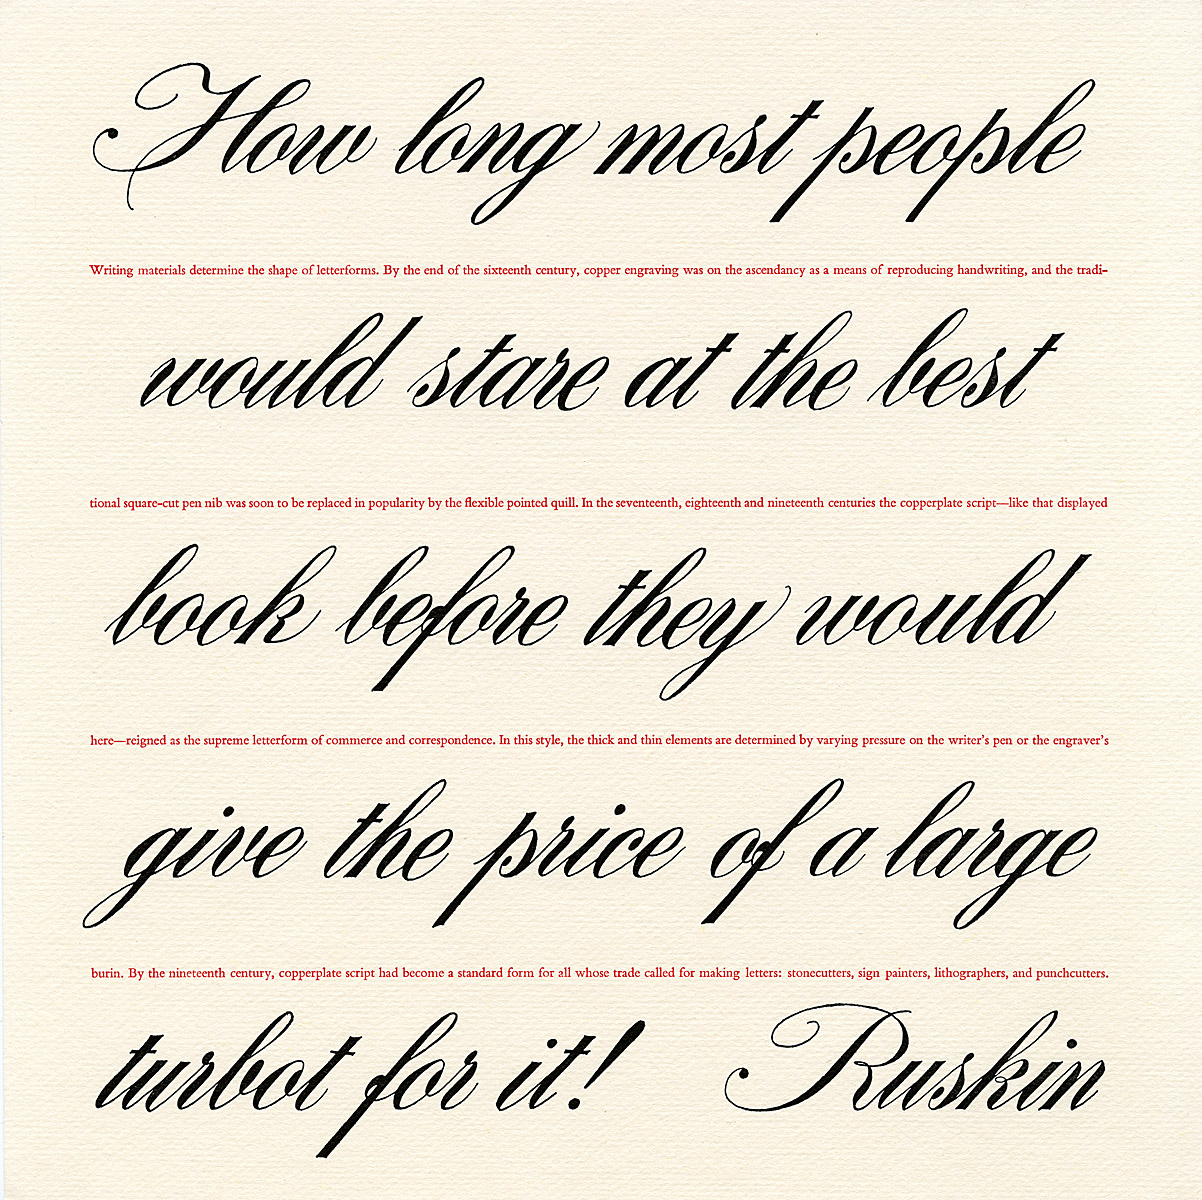 How long most people
Writing materials determine the shape of letterforms. By the end of the sixteenth century, copper engraving was on the ascendancy as a means of reproducing handwriting, and the tradi-
would stare at the best
tional square-cut pen nib was soon to be replaced in popularity by the flexible pointed quill. In the seventeenth, eighteenth and nineteenth centuries the copperplate script—like that displayed
book before they would
here—reigned as the supreme letterform of commerce and correspondence. In this style, the thick and thin elements are determined by varying pressure on the writer's pen or the engraver's
give the price of a large
burin. By the nineteenth century, copperplate script had become a standard form for all whose trade called for making letters: stonecutters, sign painters, lithographers, and punchcutters.
turbot for it! Ruskin